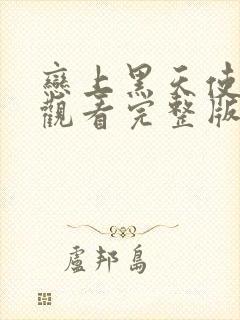 戀上黑天使
觀看完整版
盧邦島